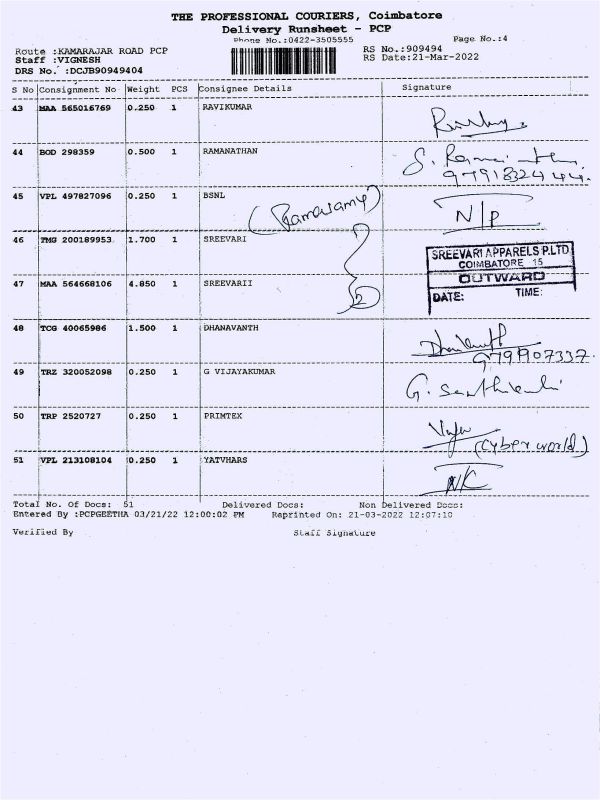 THE PROFESSIONAL COURIERS, Coimbatore
Delivery Runsheet - PCP
Phone No.:0422-3505555 Page No.:4
Route :KAMARAJAR ROAD PCP RS No.:909494
Staff :VIGNESH RS Date:21-Mar-2022
DRS No. :DCJB90949404
S No Consignment No Weight PCS Consignee Details Signature
43 MAA 565016769 0.250 1 RAVIKUMAR
44 BOD 298359 0.500 1 RAMANATHAN
9791832444.
45 VPL 497827096 0.250 1 BSNL N/P
(Ramasamy)
46 TMG 200189953 1.700 1 SREEVARI
SREEVARI APPARELS P.LTD
COIMBATORE 15
OUTWARD
47 MAA 564668106 4.850 1 SREEVARII 2 DATE: TIME:
48 TCG 40065986 1.500 1 DHANAVANTH
9791907337.
49 TRZ 320052098 0.250 1 G VIJAYAKUMAR
50 TRP 2520727 0.250 1 PRIMTEX
(Cyber world)
51 VPL 213108104 0.250 1 YATVHARS
NK
Total No. Of Docs: 51 Delivered Docs: Non Delivered Docs:
Entered By :PCPGEETHA 03/21/22 12:00:02 PM Reprinted On: 21-03-2022 12:07:10
Verified By Staff Signature